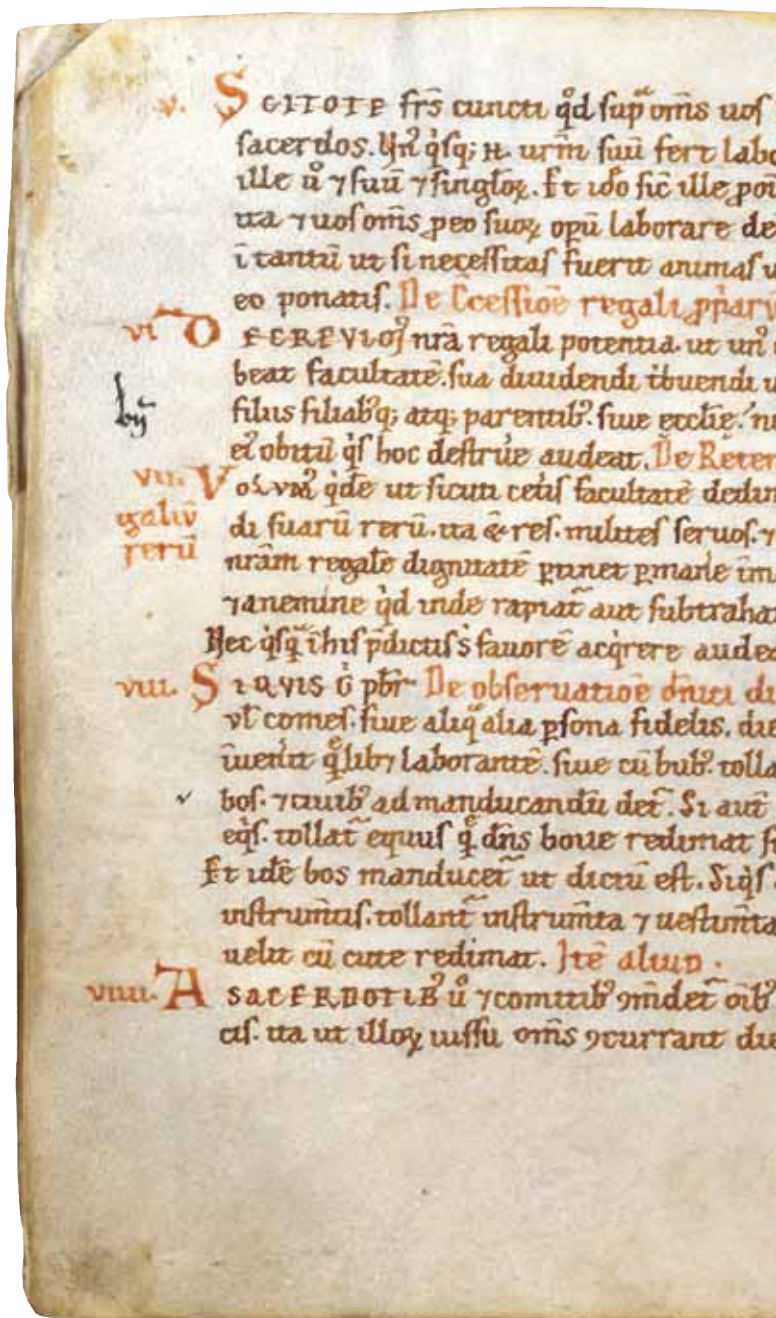 v. SCITOTE frs̄ cuncti qd̄ sup oms̄ uos
sacerdos. Un̄ qisq; n. urm̄ suū fert labo
ille ū ⁊ suū ⁊ singloꝝ. Et ido sic ille
ita ⁊ uos oms̄ ꝓ eo suoꝝ opū laborare de
ī tantū ut si necessitas fuerit animas u
eo ponatis. De Ccessioē regali
vi DECREVIOꝰ nrā regali potentia. ut un
beat facultatē. sua diuidendi tbuendi u
filius filiabꝰq; atq; parentibꝰ. siue ecclīe. n
eī obitū qis hoc destrue audeat. De Reten
vii. VOLVMꝰ qidē ut sicuti cetis facultatē dedim
galiū di suarū rerū. ita & res. milites seruos. ⁊
rerū nrām regalē dignitatē ꝑtinet ꝑmanē im
⁊ anemine qd inde rapiat̄ aut subtrahat
Nec qisq ī his pdictis s fauorē acqirere audea
viii. SIQVIS ō pbr̄ De obseruatioē dnici di
vl̄ comes. siue aliq alia ꝑsona fidelis. die
īuenit qēlibꝫ laborantē. siue cū bubꝰ. tolla
bos. ⁊ ciuibꝰ ad manducandū det̄. Si aūt
eqis. tollat̄ equus q̊ dns̄ boue redimat si
Et idē bos manducet̄ ut dictū est. Siqis
instrumtis. tollant̄ instrumta ⁊ uestimta
uelit cū cute redimat. Itē aliud.
viiii. A SACERDOTIBꝰ ū ⁊ comitibꝰ ꝯmdet̄ oibꝰ
cis. ita ut illoꝝ iussu oms̄ ꝯcurrant die